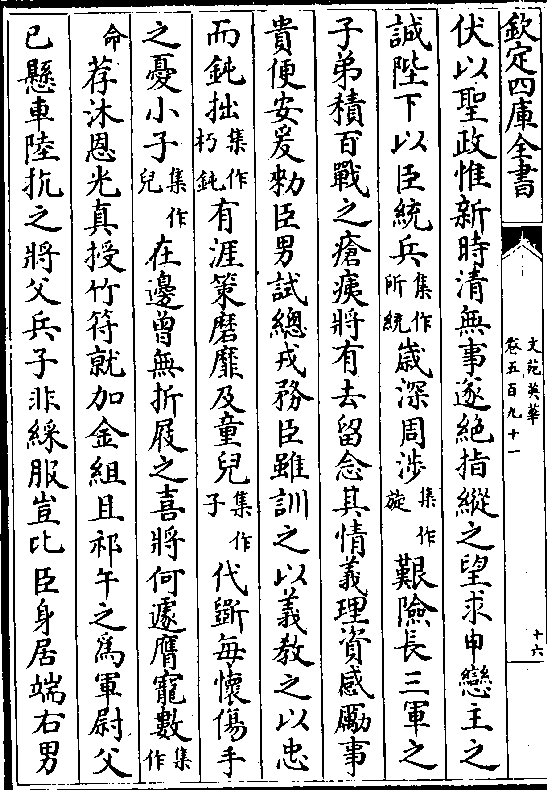 欽定四庫全書
文苑英華
卷五百九十一
十六
伏以聖政惟新時清無事遂絶指縱之望求申戀主之
誠陛下以臣統兵集作所統歲深周涉集作旋艱險長三軍之
子弟積百戰之瘡痍將有去留念其情義理資感勵事
貴便安爰勑臣男試總戎務臣雖訓之以義教之以忠
而鈍拙集作朽鈍有涯策磨靡及童兒集作子代斵每懐傷手
之憂小子集作兒在邊曾無折屐之喜將何遽膺寵數集作
命荐沐恩光真授竹符就加金組且祁午之為軍尉父
已懸車陸抗之將父兵子非綵服豈比臣身居端右男